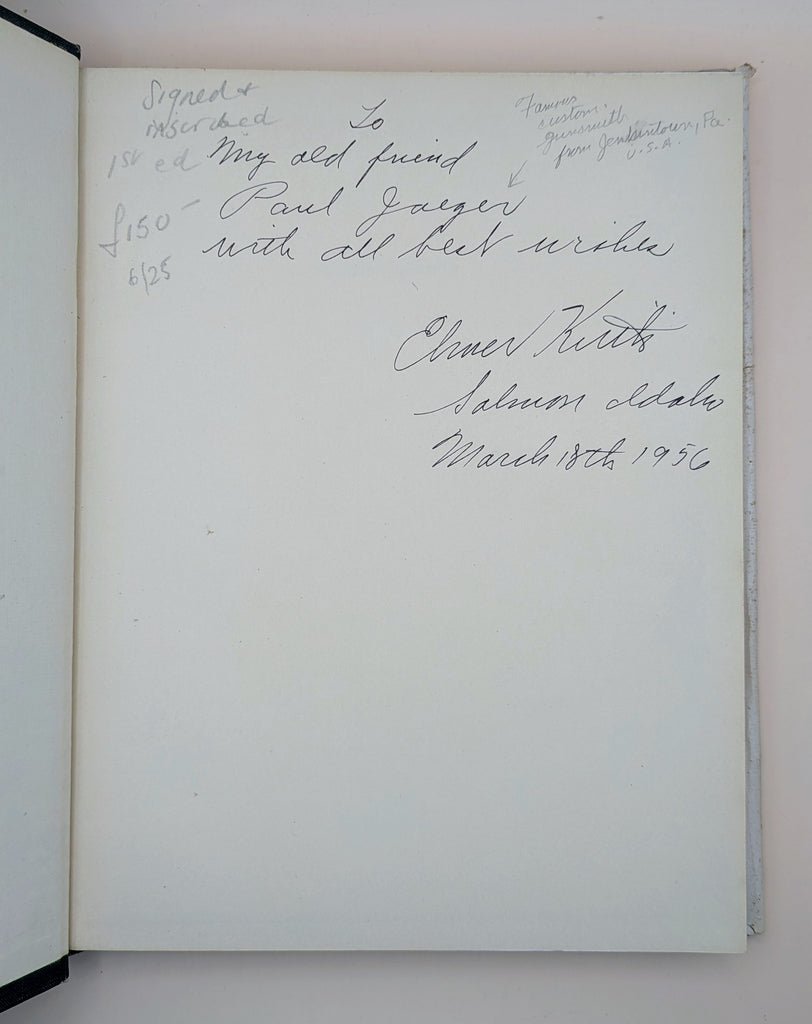 Signed +
inscribed
1st ed
£150-
6/25
Famous
custom
gunsmith
from Jenkintown, Pa.
U.S.A.
To
My old friend
Paul Jaeger
with all best wishes
Elmer Keith
Salmon Idaho
March 18th 1956